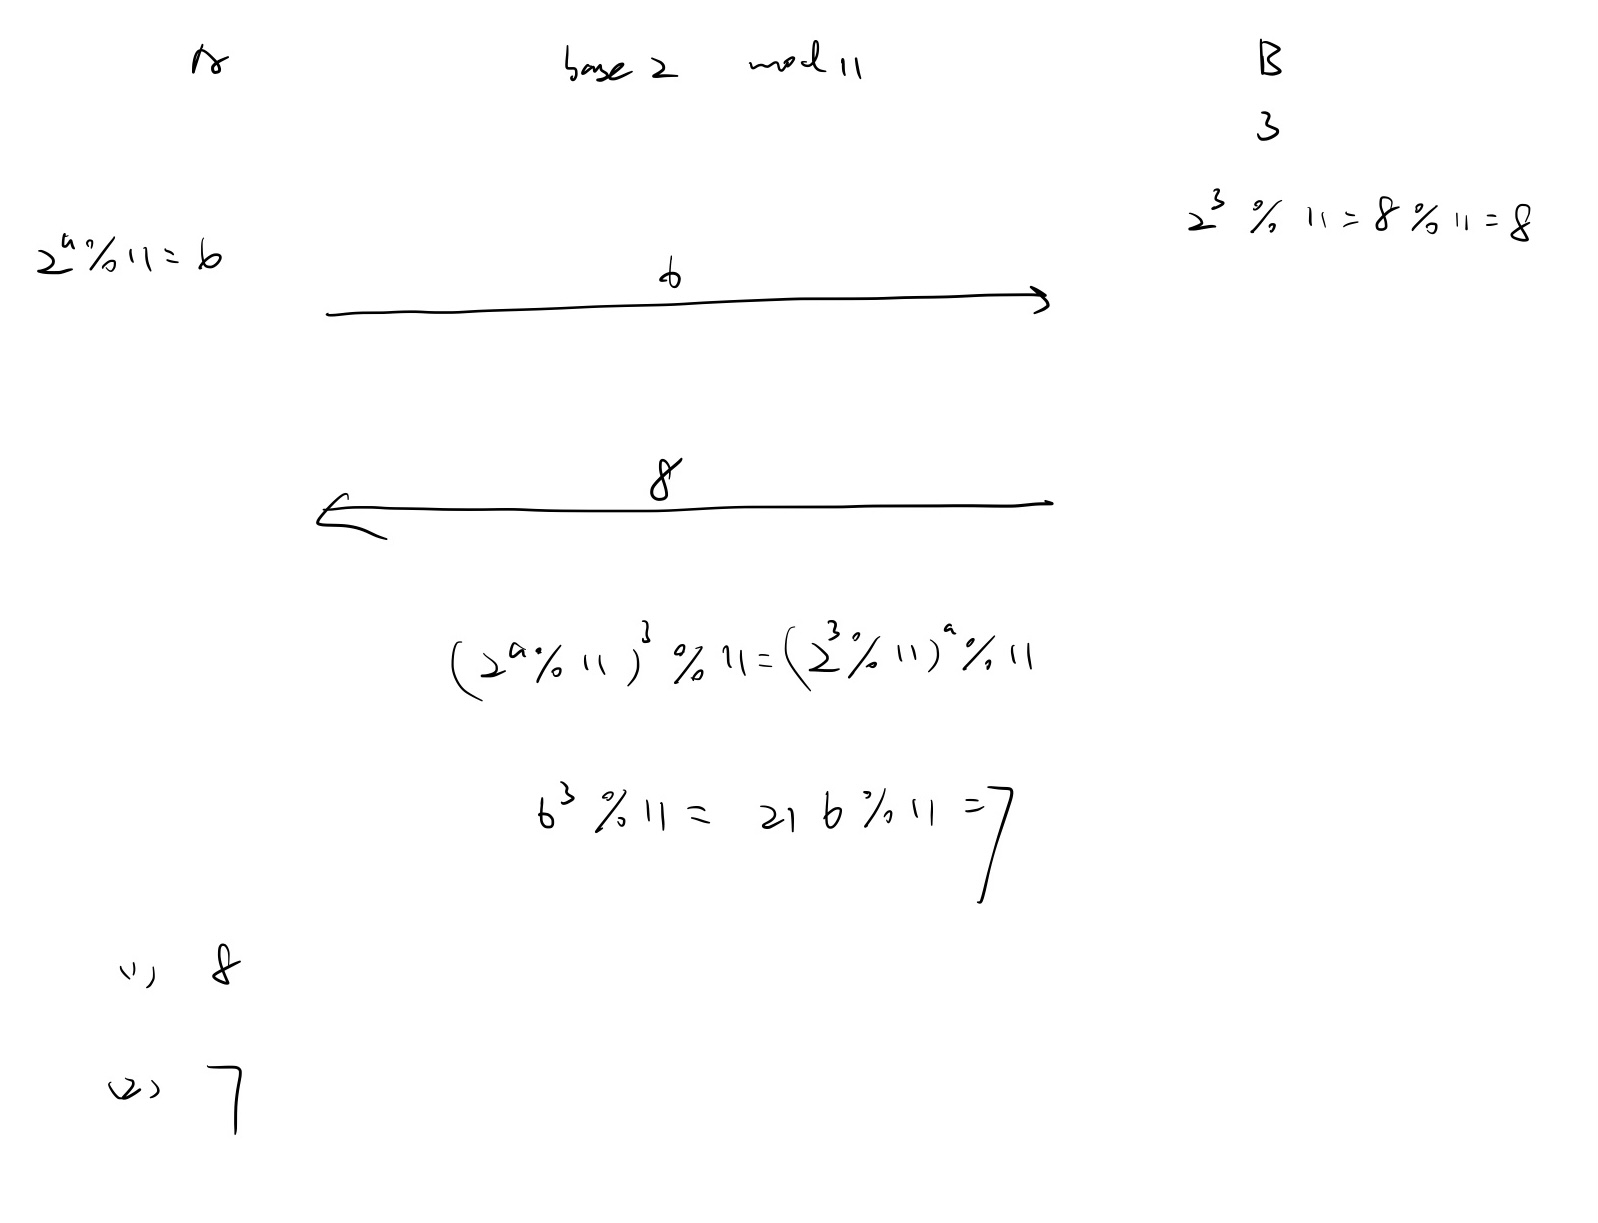 A base 2 mod 11 B
3
2^3 % 11 = 8 % 11 = 8
2^a % 11 = 6
6
8
(2^a % 11)^3 % 11 = (2^3 % 11)^a % 11
6^3 % 11 = 216 % 11 = 7
(1) 8
(2) 7